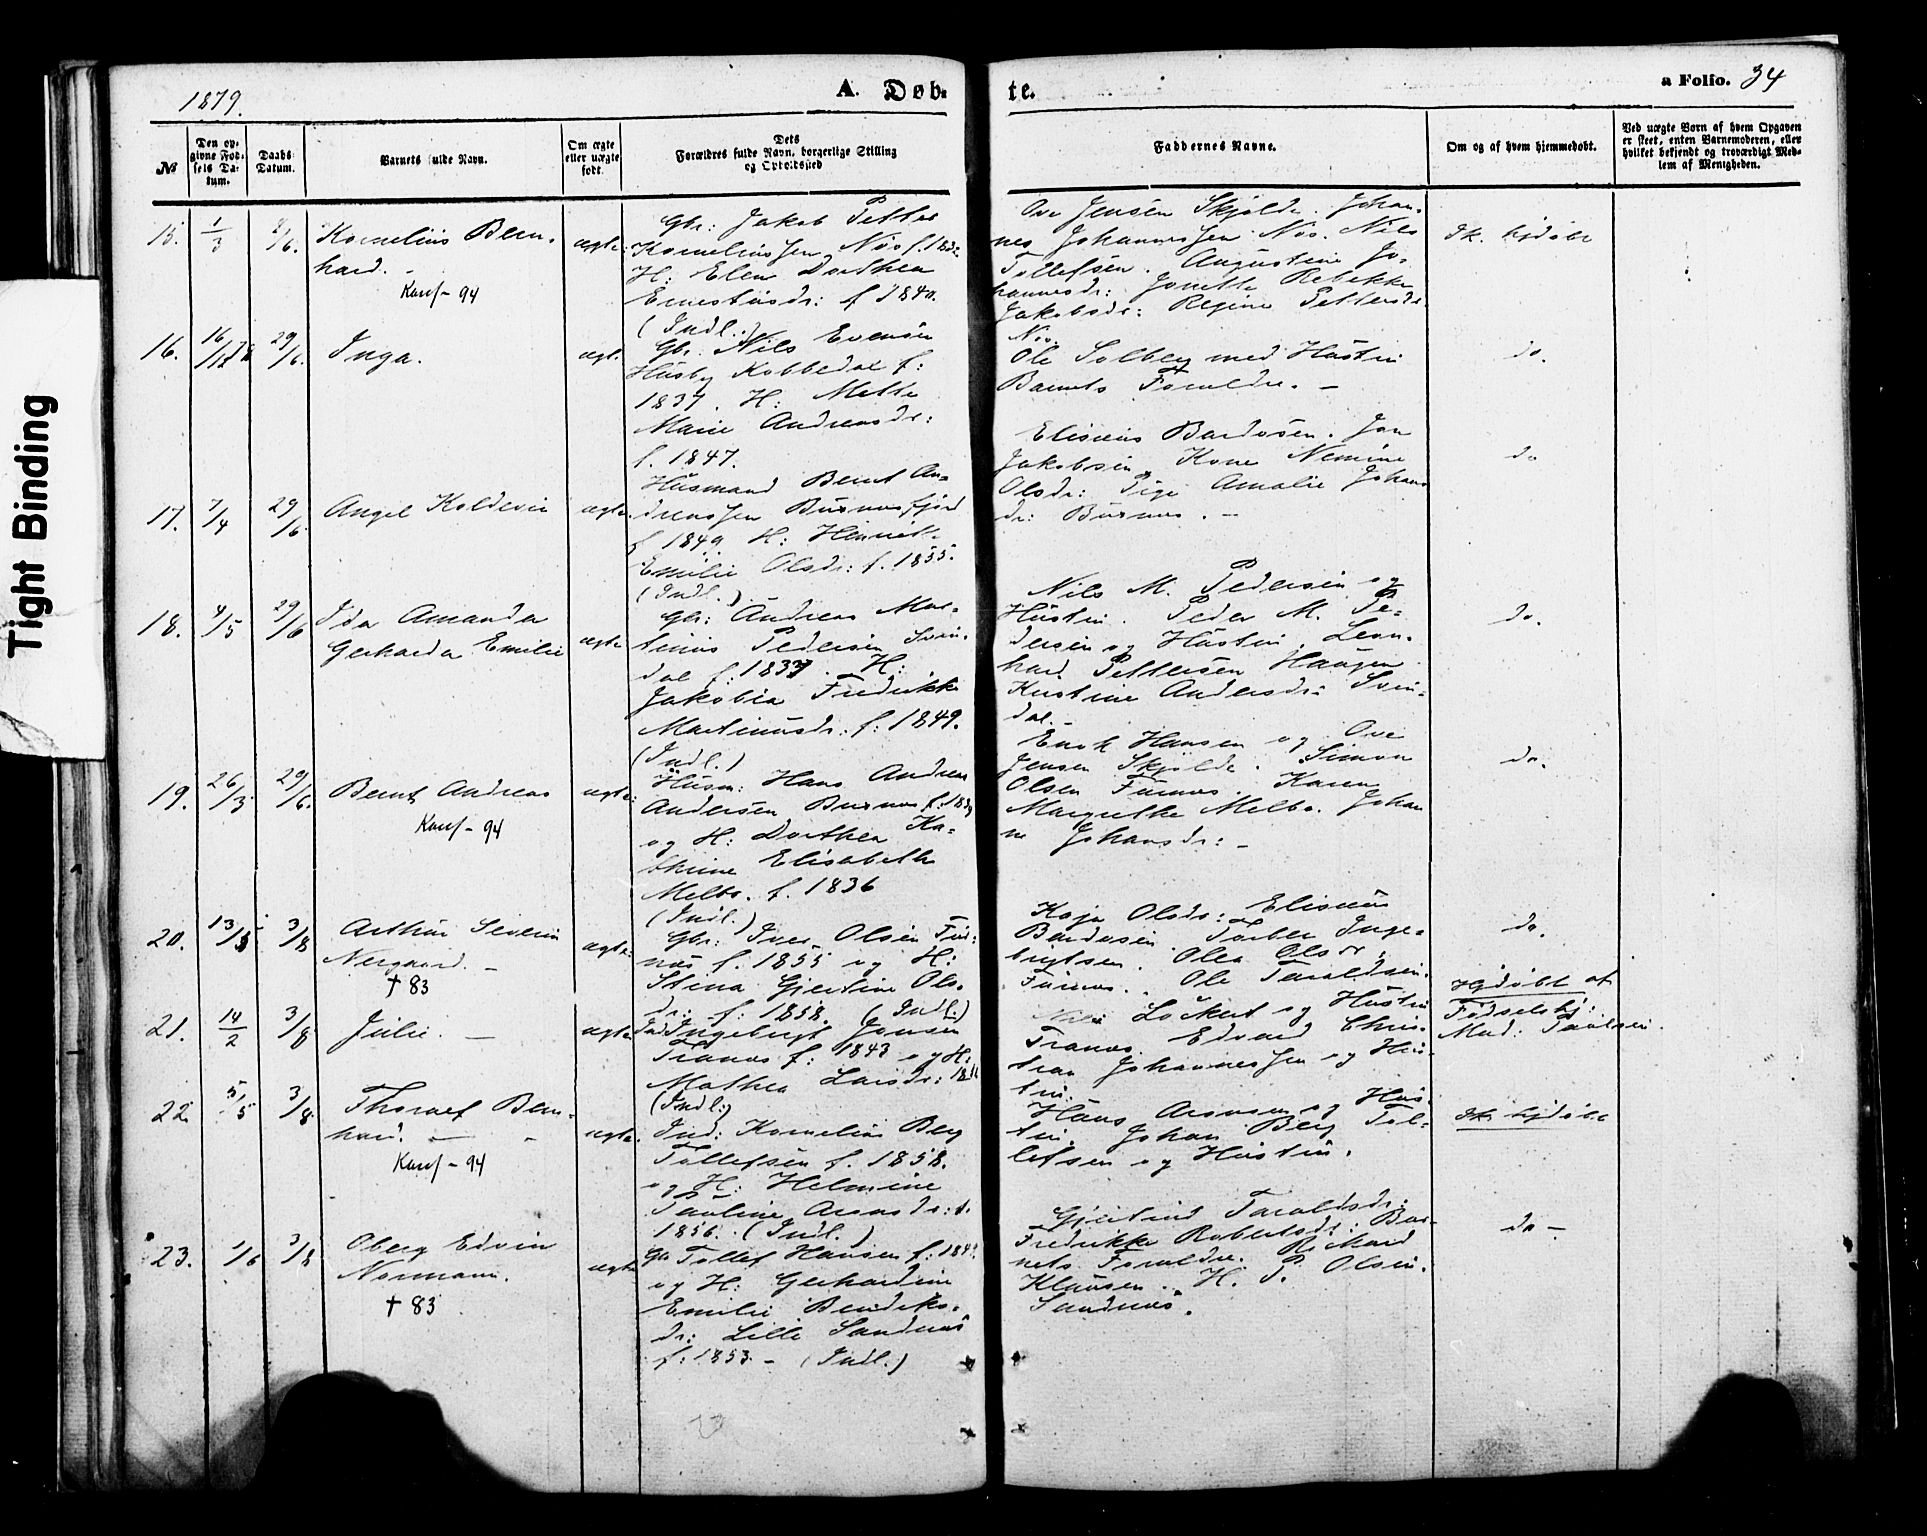 Tight Binding
1879.
A. Døb-
te.
a Folio. 34
№
Den op-
givne Fød-
sels Da-
tum.
Daabs-
Datum.
Barnets fulde Navn.
Om ægte
eller uægte
født.
Dets
Forældres fulde Navn, borgerlige Stilling
og Opholdssted
Faddernes Navne.
Om og af hvem hjemmedøbt.
Ved uægte Børn af hvem Opgaven
er skeet, enten Barnemoderen, eller
hvilket bekjendt og troværdigt Med-
lem af Menigheden.
15. 1/3 /6. Kornelius Bern-
hard. -
Konf - 94
ægte:
Gbr: Jakob Petter
Korneliussen Nøs f. 183
H: Elen Dorthea
Ernestusdr: f 1840.
(Indl.)
Ove Jensen Skjelde. Johan-
nes Johannessen Nøs. Nils
Tollefsen. Augustine Jo-
hannesdr: Jonette Rebekka
Jakobsdr: Regine Pettersdr
Nøs.
ik. hjdøbt
16. 16/12 78 29/6. Inga.
ægt.
Gbr. Nils Evensen
Husby Kobbedal f:
1837. H: Mette
Marie Andreasdr:
f. 1847.
Ole Solberg med Hustru
Barnets Forældre. -
do.
17. 7/4 29/6 Angel Koldevin
ægte.
Husmand Bernt An-
dreassen Burnesfjord
f 1849. H: Henriette
Emilie Olsdr: f. 1855.
(Indl.)
Eliseus Bardosen. Jan
Jakobsen, Kone Nemine
Olsdr: Pige Amalie Johans
dr: Burnes. -
do
18. 4/5 29/6 Ida Amanda
Gerharda Emilie
ægte
Gbr: Andreas Mar-
tinus Pedersen Svin-
dal f: 1837. H:
Jakobia Fredrikke
Martinusdr: f: 1849.
(Indl.)
Nils M. Pedersen og
Hustru. Peder M. Pe-
dersen og Hustru, Leon-
hard Pettersen Haugen
Kristine Andersdr: Svin-
dal. -
do.
19. 26/3 29/6. Bernt Andreas
Konf - 94
ægte:
Husm: Hans Andreas
Andersen Burnes f: 18
og H: Dorthea Ka-
thrine Elisabeth
Melbo. f. 1836
(Indl.)
Enok Hansen og Ove
Jensen Skjelde. Simon
Olsen Furnes. Karen
Margrethe Melbo. Johan
ne Johansdr: -
do.
20. 13/5 3/8 Arthur Severin
Nergaard. -
† 83
ægte.
Gbr: Iver Olsen Fur-
nes f. 1855 og H:
Stina Gjertine Ols-
dr: f: 1858. (Indl.)
Kaja Olsdr: Eliseus
Bardosen. Torber Inge-
brigtsen. Olea Olsdr
Furnes. Ole Taraldsen.
do.
21. 14/2 3/8 Julie. -
ægte
Ind: Ingebrigt Jonsen
Tranøs f: 1843 og H:
Mathea Larsdr: 18
(Indl.)
Løkert og Hustru
Tranøs. Edvard Chris-
tian Johannessen og Hus-
tru.
Hjdøbt af
Fødselshj:
Mad: Paulsen.
22. 5/5 3/8 Thoralf Bern-
hard. - -
Konf - 94
ægte.
Ind: Kornelius Berg
Tollefsen f. 1858.
og H: Helmine
Pauline Aronsdr: f.
1856. (Indl.)
Hans Aronsen og Hus-
tru. Johan Berg Tol-
lefsen og Hustru.
ik hjdøbt
23. 1/6 3/8 Oberg Edvin
Normann.
† 83
ægte
Gbr Tollef Hansen f: 184
og H: Gerhardine
Emilie Bendiks-
dr: Lille Sandnes
f: 1853. - (Indl.)
Gjertrud Taraldsdr:
Fredrikke Robertsdr: Bar-
nets Forældre. Rikard
Klausen. H. P. Olsen.
Sandnes.
do -